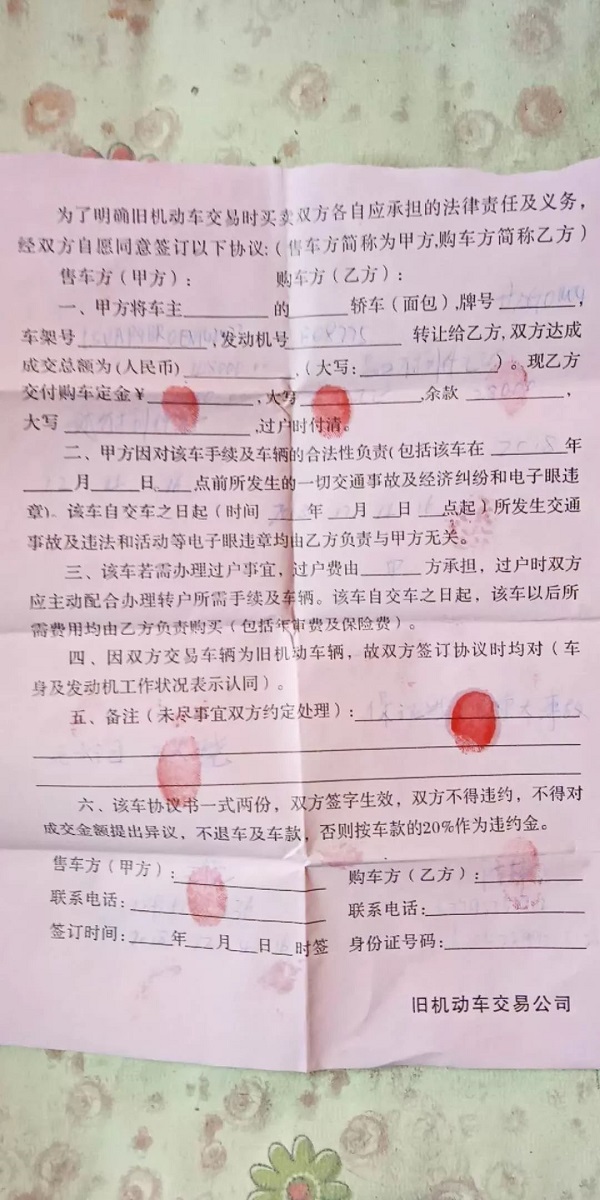 为了明确旧机动车交易时买卖双方各自应承担的法律责任及义务，
经双方自愿同意签订以下协议:(售车方简称为甲方,购车方简称乙方)
售车方(甲方)： 购车方(乙方)：
一、甲方将车主 的 轿车(面包),牌号 ，
车架号 ,发动机号 转让给乙方,双方达成
成交总额为(人民币) ,(大写: )。现乙方
交付购车定金¥ ,大写 ,余款 ，
大写 ,过户时付清。
二、甲方因对该车手续及车辆的合法性负责(包括该车在 年
月 日 点前所发生的一切交通事故及经济纠纷和电子眼违
章)。该车自交车之日起(时间 年 月 日 点起)所发生交通
事故及违法和活动等电子眼违章均由乙方负责与甲方无关。
三、该车若需办理过户事宜，过户费由 方承担，过户时双方
应主动配合办理转户所需手续及车辆。该车自交车之日起，该车以后所
需费用均由乙方负责购买(包括年审费及保险费)。
四、因双方交易车辆为旧机动车辆，故双方签订协议时均对(车
身及发动机工作状况表示认同)。
五、备注(未尽事宜双方约定处理)：
六、该车协议书一式两份，双方签字生效，双方不得违约，不得对
成交金额提出异议，不退车及车款，否则按车款的20%作为违约金。
售车方(甲方)： 购车方(乙方)：
联系电话： 联系电话：
签订时间： 年 月 日 时签 身份证号码：
旧机动车交易公司